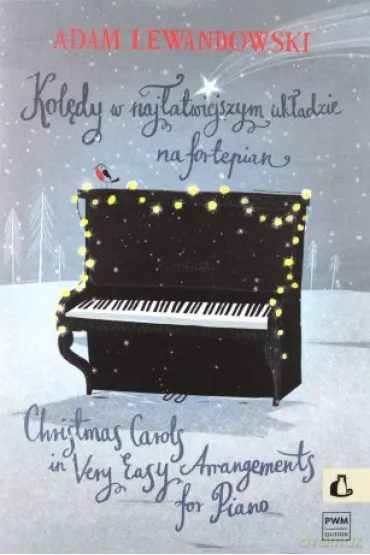 ADAM LEWANDOWSKI
Kolędy w najłatwiejszym układzie
na fortepian
Christmas Carols
in Very Easy Arrangements
for Piano
PWM
EDITION